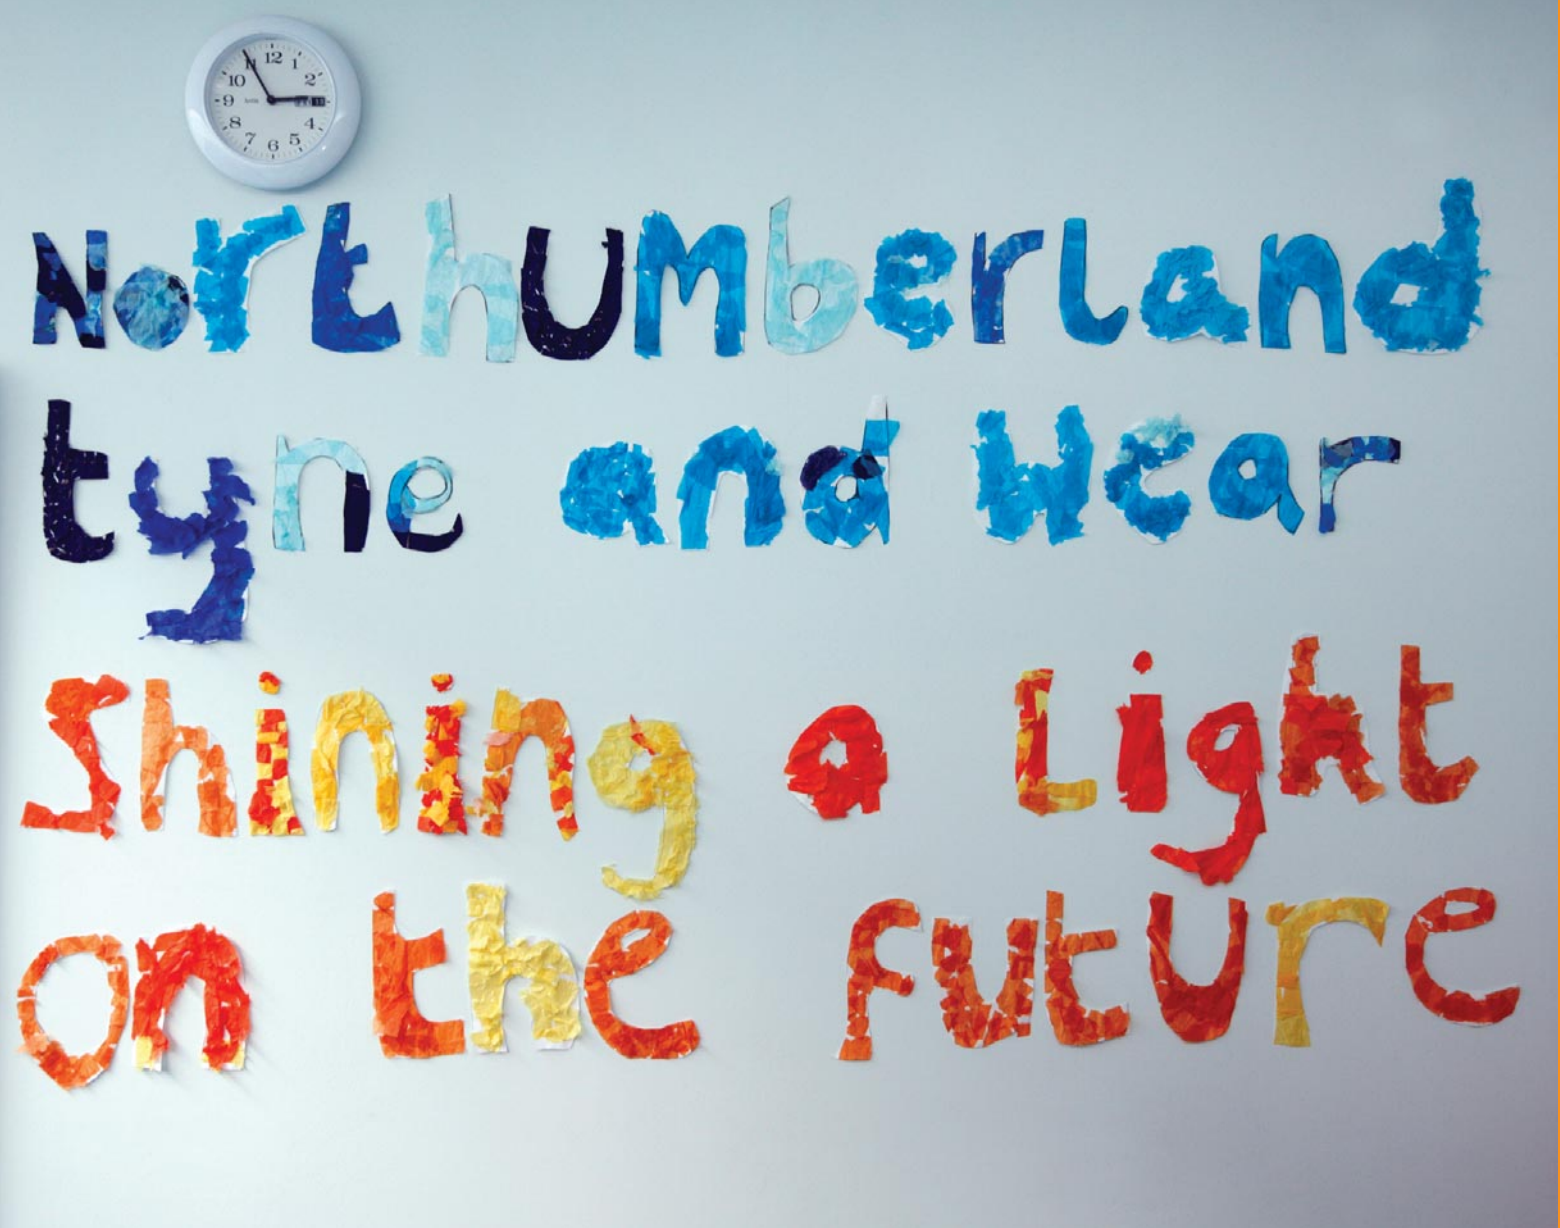 12 1 2 4 5 6 7 8 9 10 11
Northumberland
tyne and Wear
Shining a Light
on the future